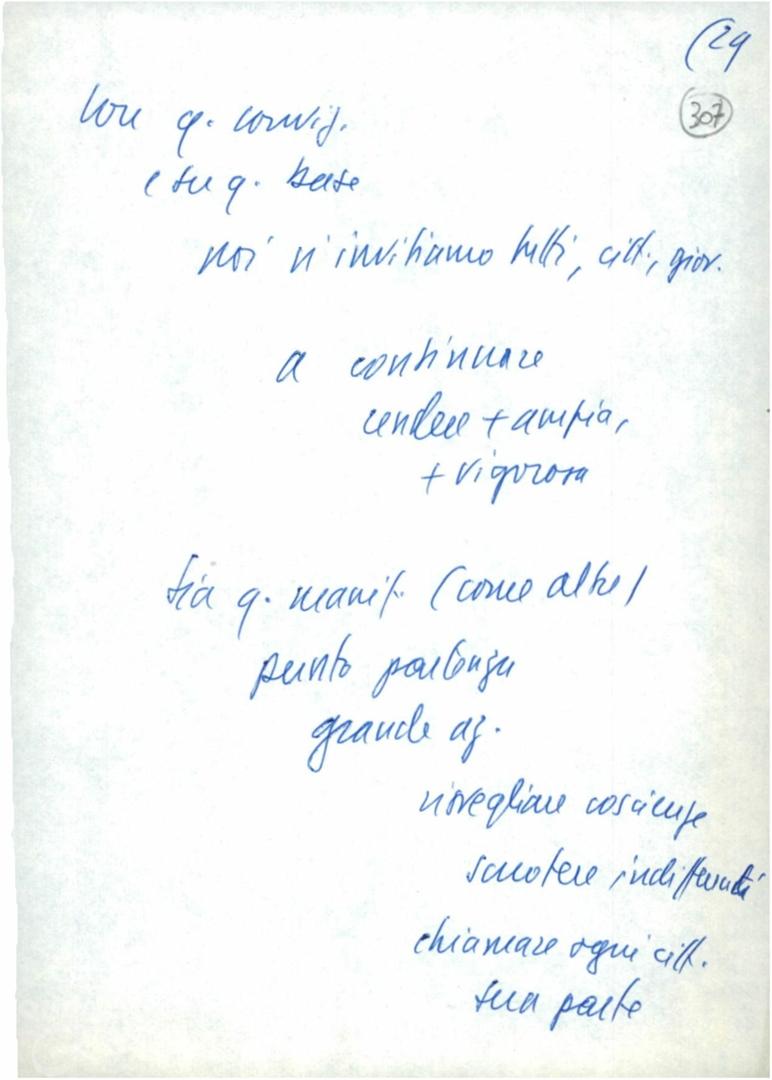 (29
307
Con q. conviz.
e su q. base
noi vi invitiamo tutti, citt., giov.
a continuare
rendere + ampia,
+ vigorosa
sia q. manif. (come altre)
punto partenza
grande az.
risvegliare coscienze
scuotere indifferenti
chiamare ogni citt.
sua parte